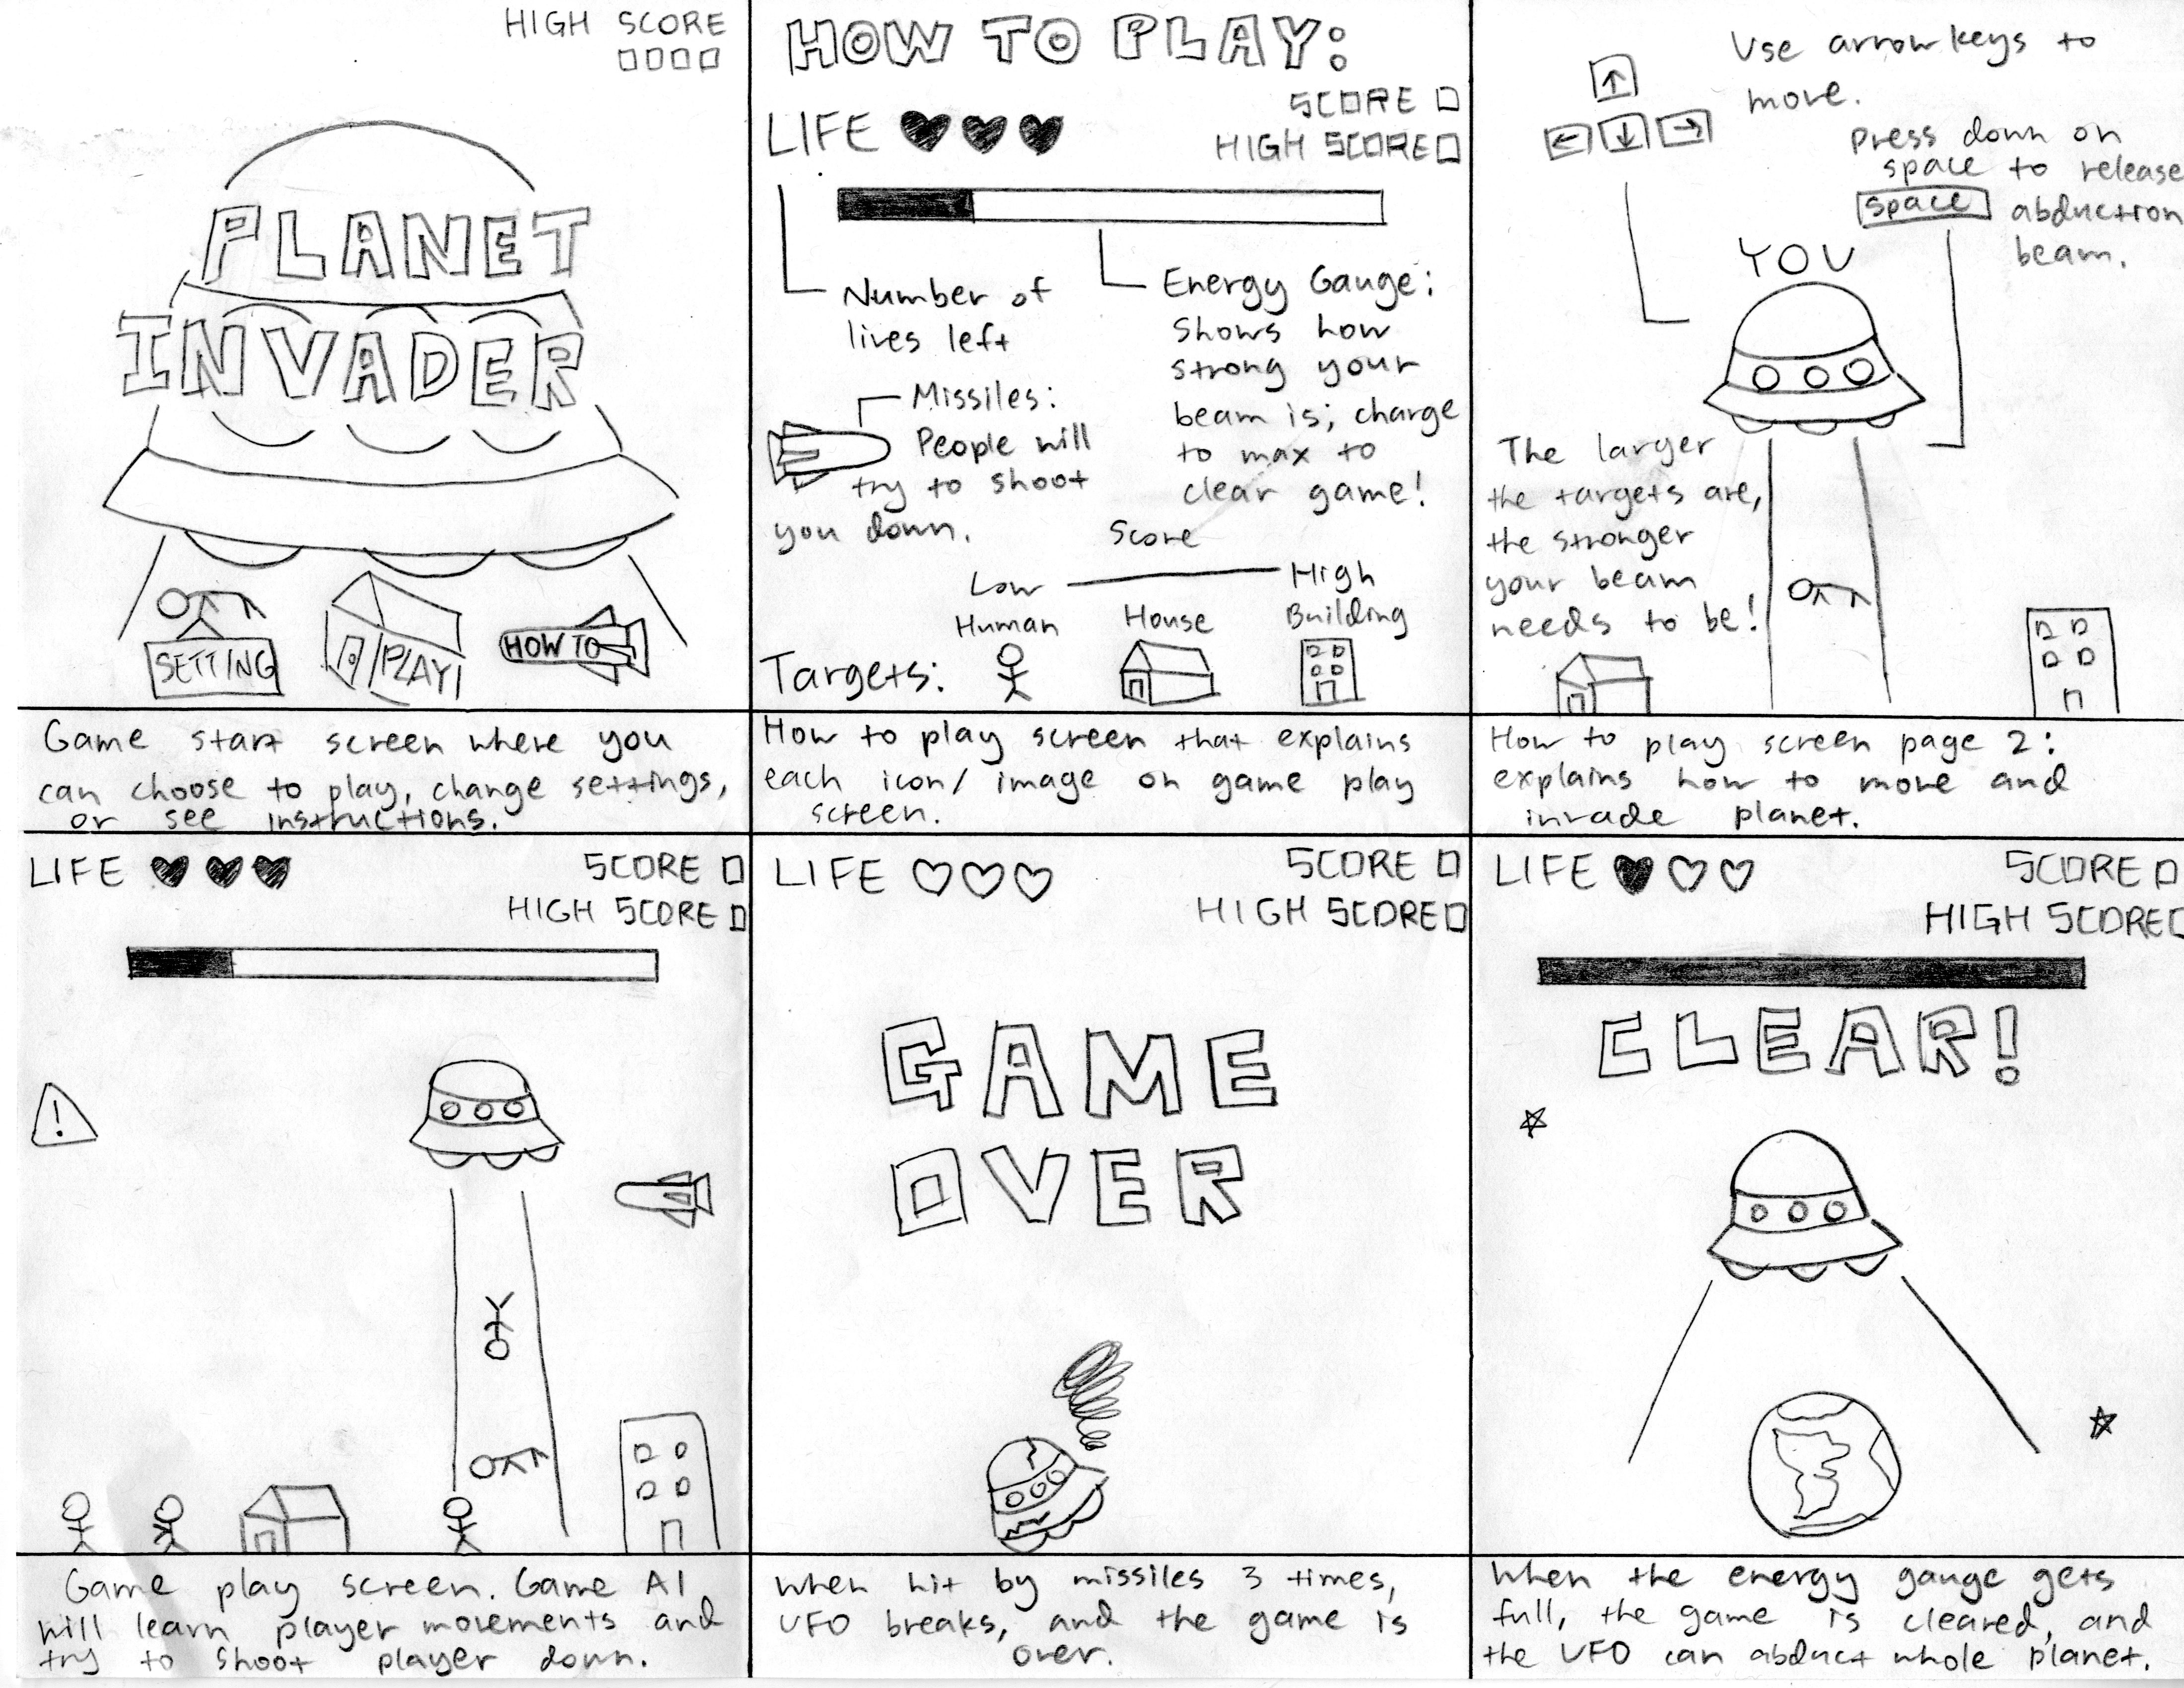 HIGH SCORE
PLANET
INVADER
SETTING
PLAY
HOW TO
Game start screen where you
can choose to play, change settings,
or see instructions.
HOW TO PLAY:
SCORE
LIFE
HIGH SCORE
Number of
lives left
Energy Gauge:
shows how
strong your
beam is; charge
to max to
clear game!
Missiles:
People will
try to shoot
you down.
Score
Low
High
Human
House
Building
Targets:
How to play screen that explains
each icon/ image on game play
screen.
Use arrow keys to
move.
↑
← ↓ →
press down on
space to release
space
abduction
beam.
YOU
The larger
the targets are,
the stronger
your beam
needs to be!
How to play screen page 2:
explains how to move and
invade planet.
LIFE
SCORE
HIGH SCORE
!
Game play screen. Game AI
will learn player movements and
try to shoot player down.
LIFE
SCORE
HIGH SCORE
GAME
OVER
when hit by missiles 3 times,
UFO breaks, and the game is
over.
LIFE
SCORE
HIGH SCORE
CLEAR!
When the energy gauge gets
full, the game is cleared, and
the UFO can abduct whole planet.